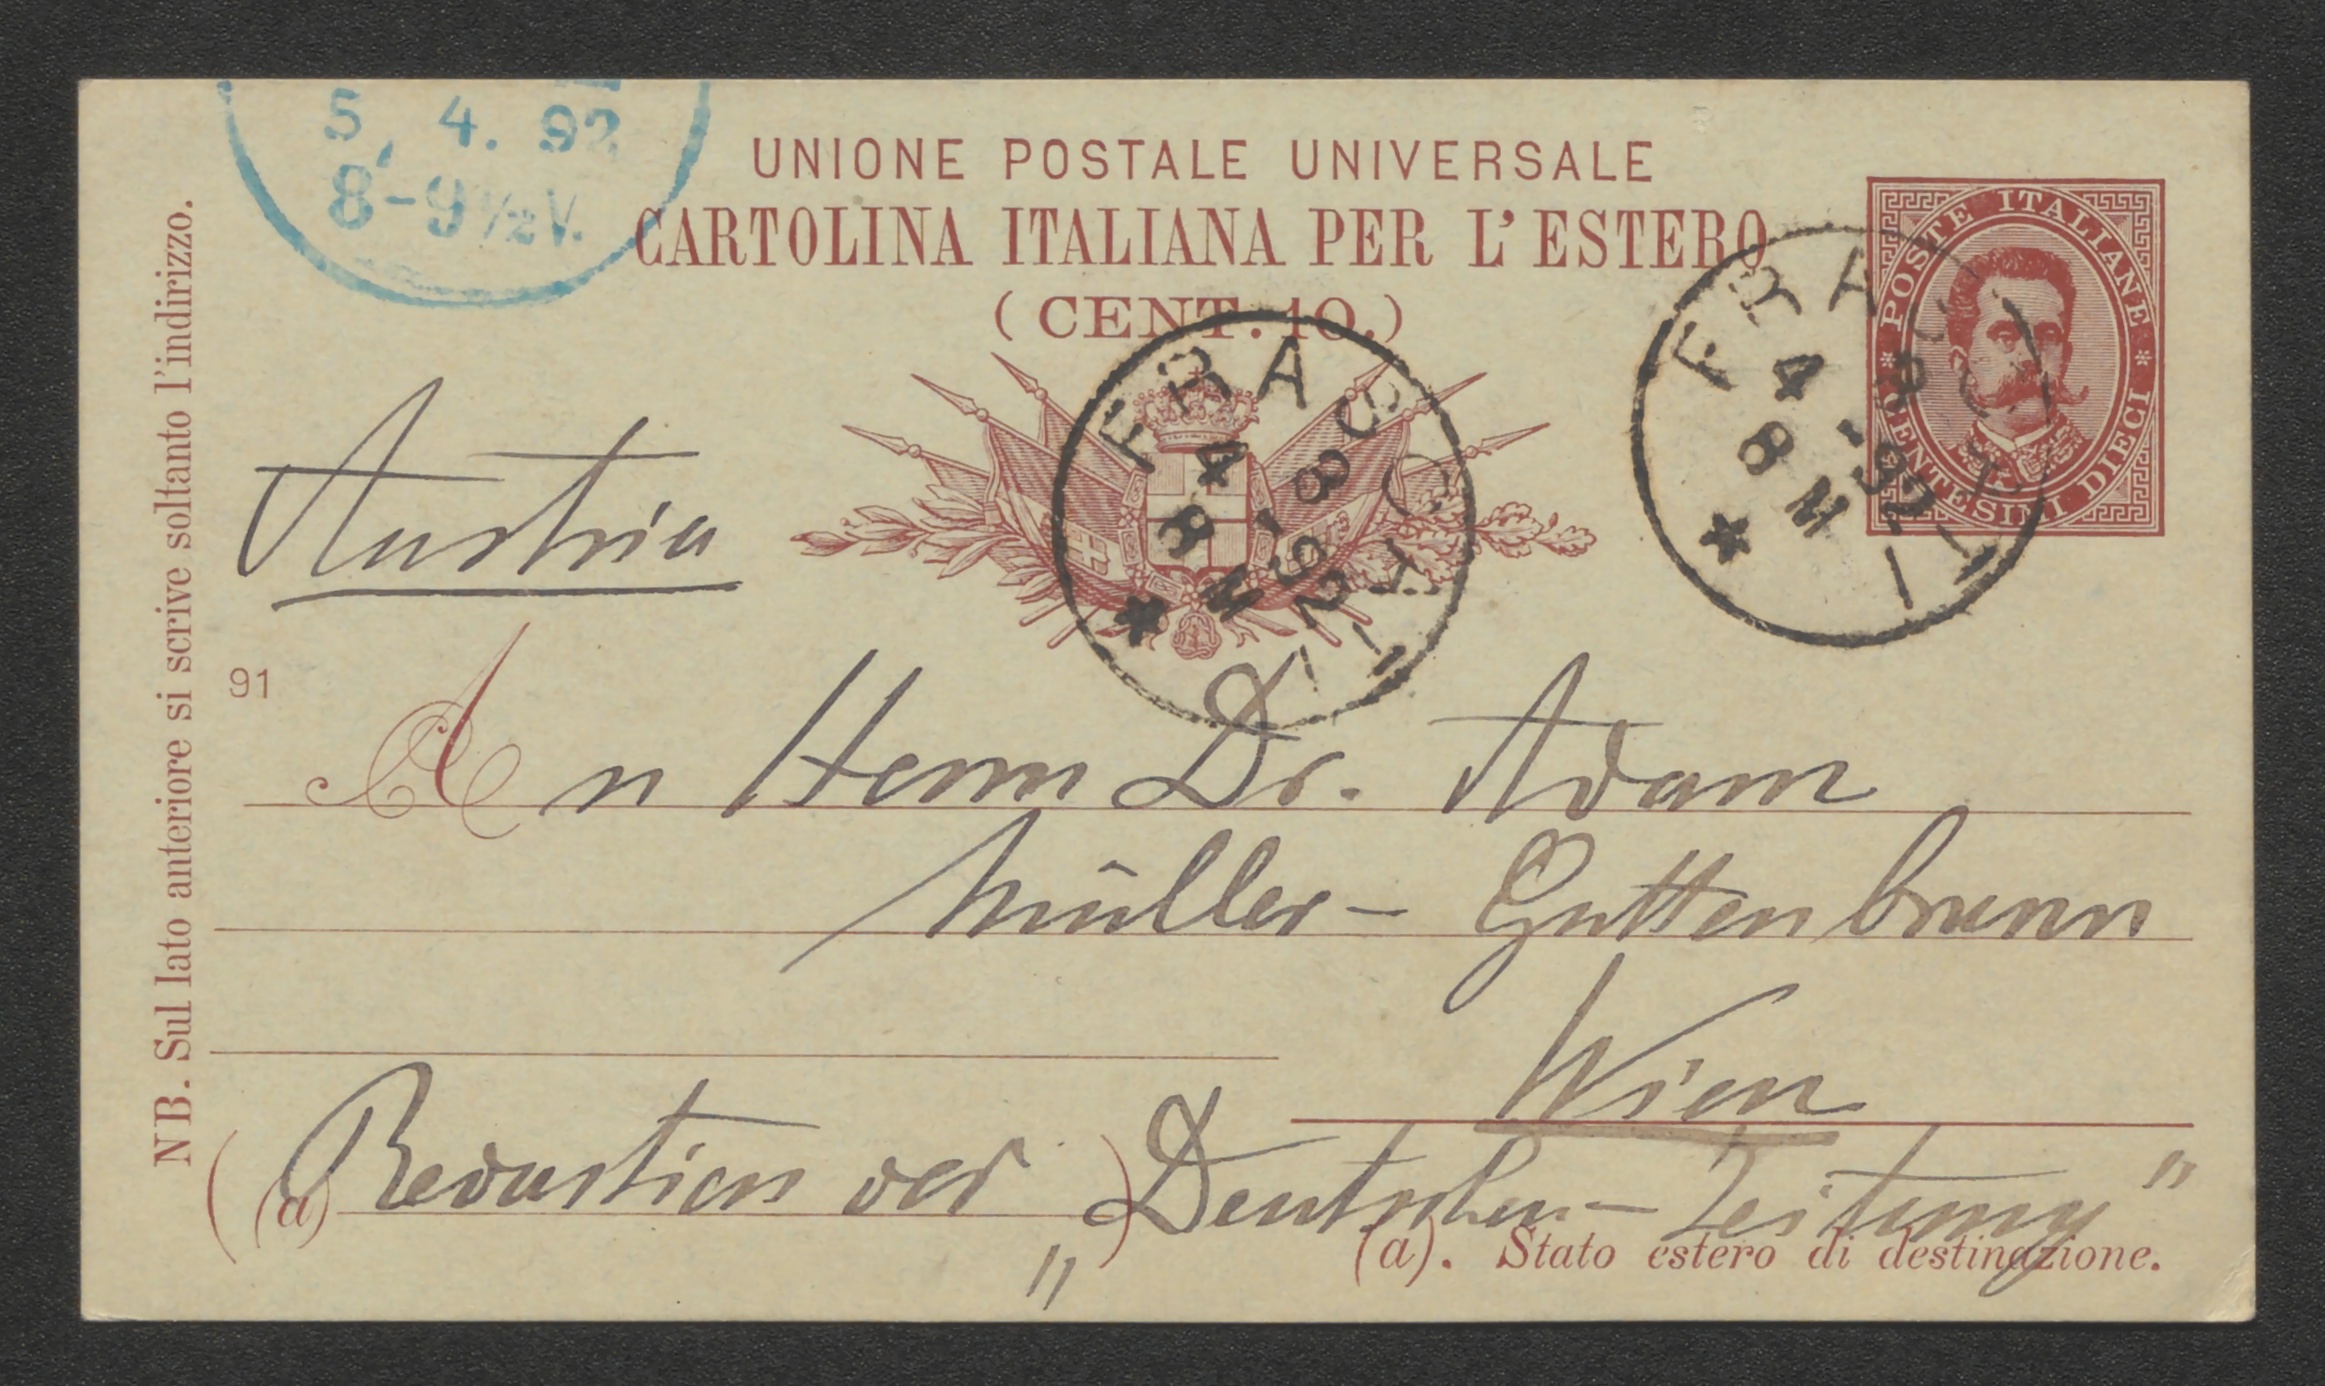 5. 4. 92
8-9½V.
UNIONE POSTALE UNIVERSALE
CARTOLINA ITALIANA PER L'ESTERO
(CENT. 10.)
POSTE ITALIANE
CENTESIMI DIECI
FRASCATI
4
8 M
92
FRASCATI
4
8 M
92
NB. Sul lato anteriore si scrive soltanto l'indirizzo.
Austria
91
An Herrn Dr. Adam
Müller-Guttenbrunn
Wien
(a) Redaction der „Deutschen-Zeitung"
(a). Stato estero di destinazione.